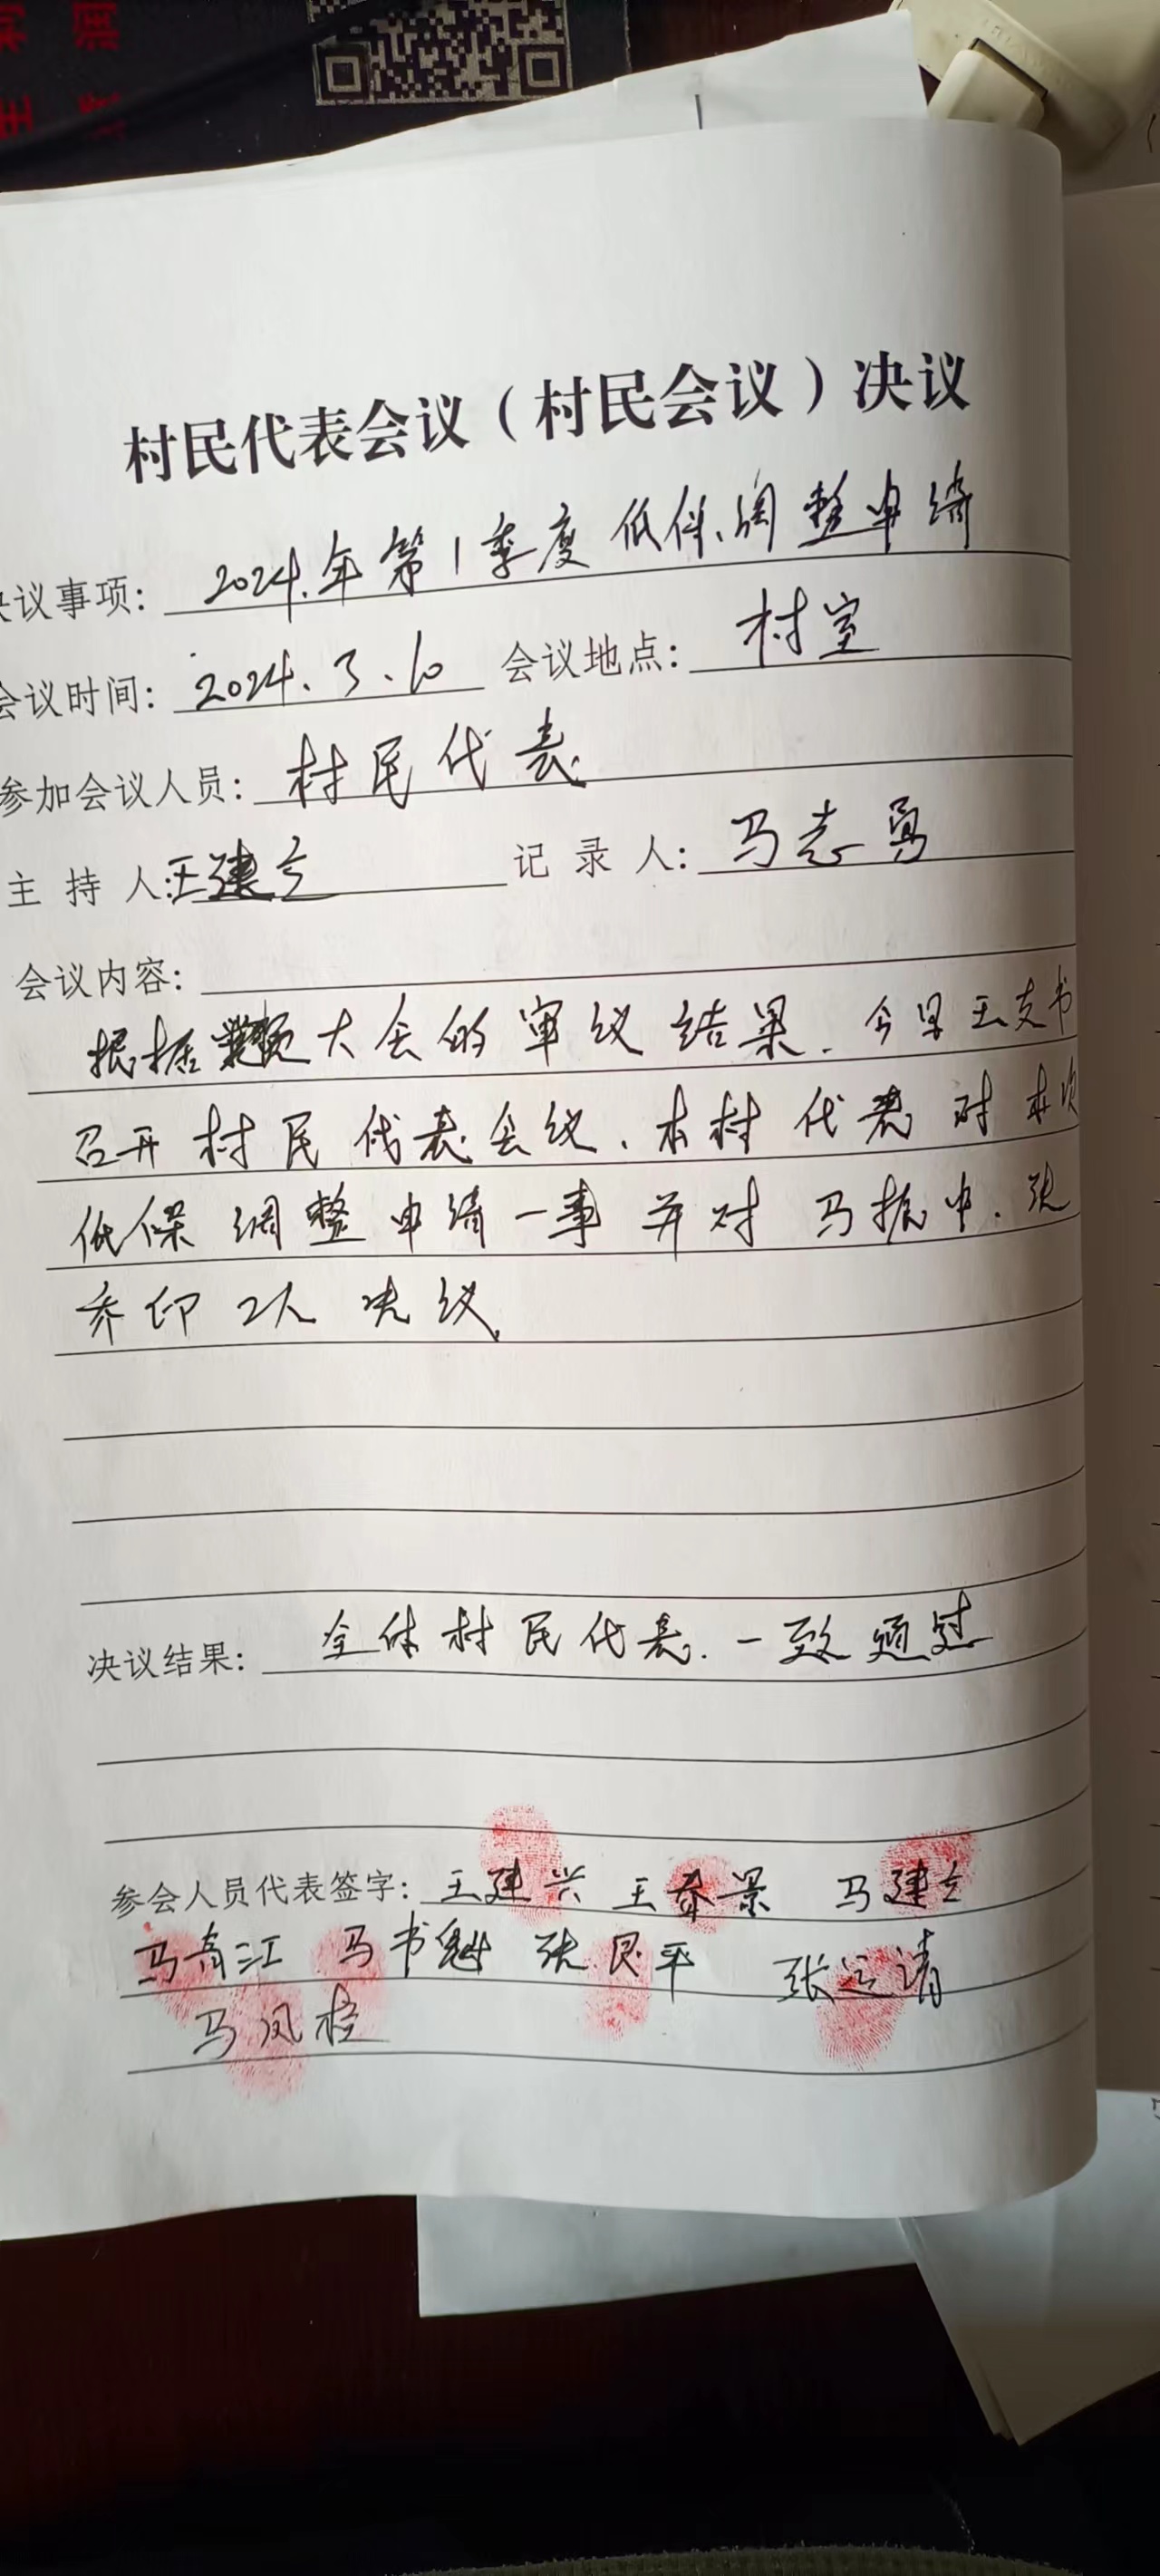 村民代表会议（村民会议）决议
议事项：2024.年第1季度低保调整申请
会议时间：2024.3.10 会议地点：村室
参加会议人员：村民代表
主 持 人：王建立 记 录 人：马志勇
会议内容：
根据党员大会的审议结果.今早王支书
召开村民代表会议.本村代表对本次
低保调整申请一事并对马振中.张
乔印2人决议.
决议结果：全体村民代表.一致通过
参会人员代表签字：王建兴 王春景 马建立
马青江 马书魁 张良平 张运清
马凤